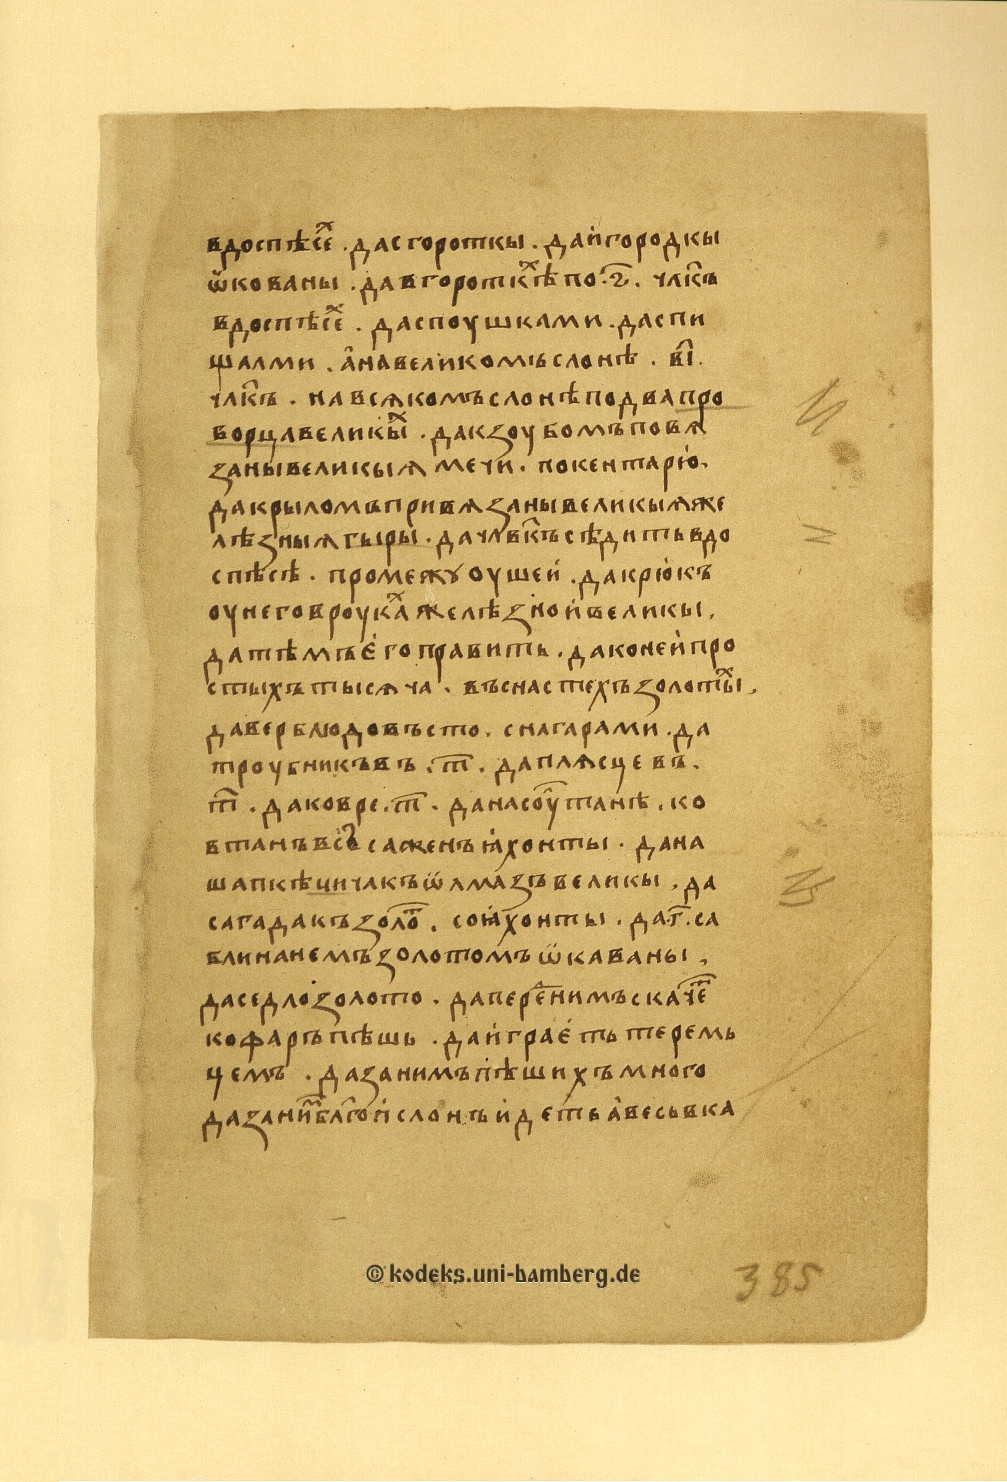 вдоспѣсѣⷯ . дасгороткы . дайгородкы
ѿкованы . давгороткѣⷯ по .ѕ҃. члк҃ъ
вдоспѣсѣⷯ . даспоушками . даспи
щалми . а҆навеликомъслонѣ . в҃і .
члк҃ъ . навсѧкомъслонѣподвапро
ворцавеликыⷯ . дакзоубомъповѧ
заны великыѧ мечи . покентарю .
дакрыломъпривѧзаны великыѧже
лѣзныѧгыры . дачл҃вкъ сѣдитьвдо
спѣсѣ . промежу оушей . дакрюкъ
оунеговроукаⷯ желѣзнойвеликы ,
датѣмъе҆гоправить . даконейпро
стыхътысѧча . въснастехъзолотыⷯ ,
даверблюдовъсто . снагарами . да
троубниквъ . т҃ . даплѧсцевъ .
т҃ . даковре . т҃ . данасоу҆танѣ . ко
втанъвсь саженъꙗхонты . дана
шапкѣчичакъѿлмазъвеликы , да
сагадакъзолоⷮ . соꙗхонты . да.г҃.са
блинанемъзолотомъѿкаваны ,
даседлозолото . даперⷣенимъскачеⷮ
кофаръпѣшь . дайграе҆ть теремь
цемъ . дазанимъпѣшихъмного
дазаниⷨблг҃ойслонъидеть а҆весьвка
© kodeks.uni-bamberg.de
385